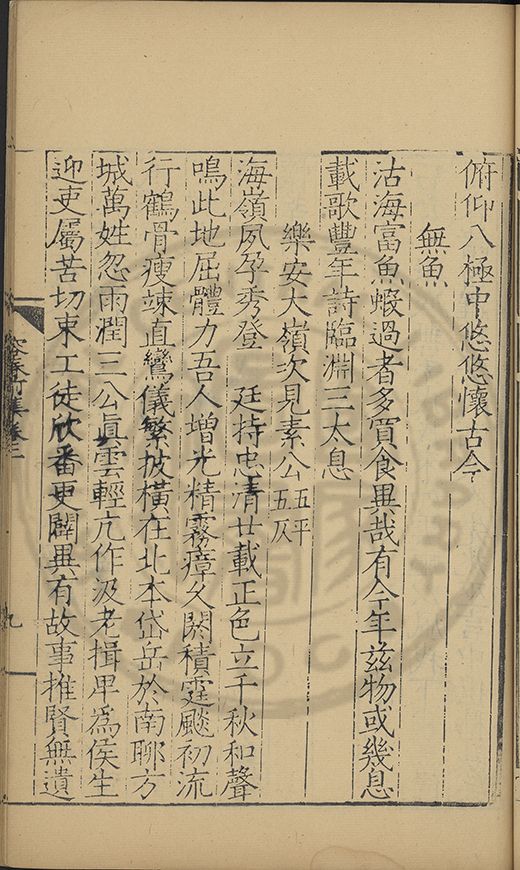 俯仰八極中悠悠懷古今
無魚
沽海富魚蝦過者多買食異哉有今年茲物或幾息
載歌豐年詩臨淵三太息
樂安大嶺次見素公五平五仄
海嶺夙孕秀登 廷持忠清廿載正色立千秋和聲
鳴此地屈體力吾人增光精霧瘴久閼積霆颷初流
行鶴骨瘦竦直鸞儀繁披橫在北本岱岳於南聊方
城萬姓忽雨潤三公眞雲輕亢作汲老揖卑爲侯生
迎吏屬苦切束工徒欣番更闢異有故事推賢無遺
容春 集卷三
九